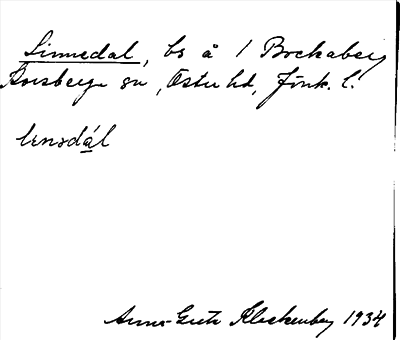 Linnedal, bs å 1 Bockaberg
Korsberga sn, Östra hd, Jönk. l.
lɩnədál
Anna-Greta Kleckenberg 1934